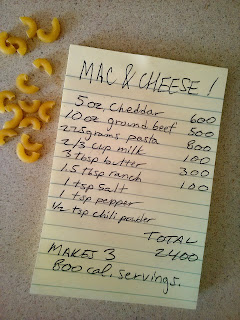 MAC & CHEESE!
5 oz cheddar 600
10 oz ground beef 500
225 grams pasta 800
2/3 cup milk 100
3 tbsp butter 300
1.5 tbsp ranch 100
1 tsp salt
1 tsp pepper
1/2 tsp chili powder
TOTAL
2400
MAKES 3
800 cal. servings.